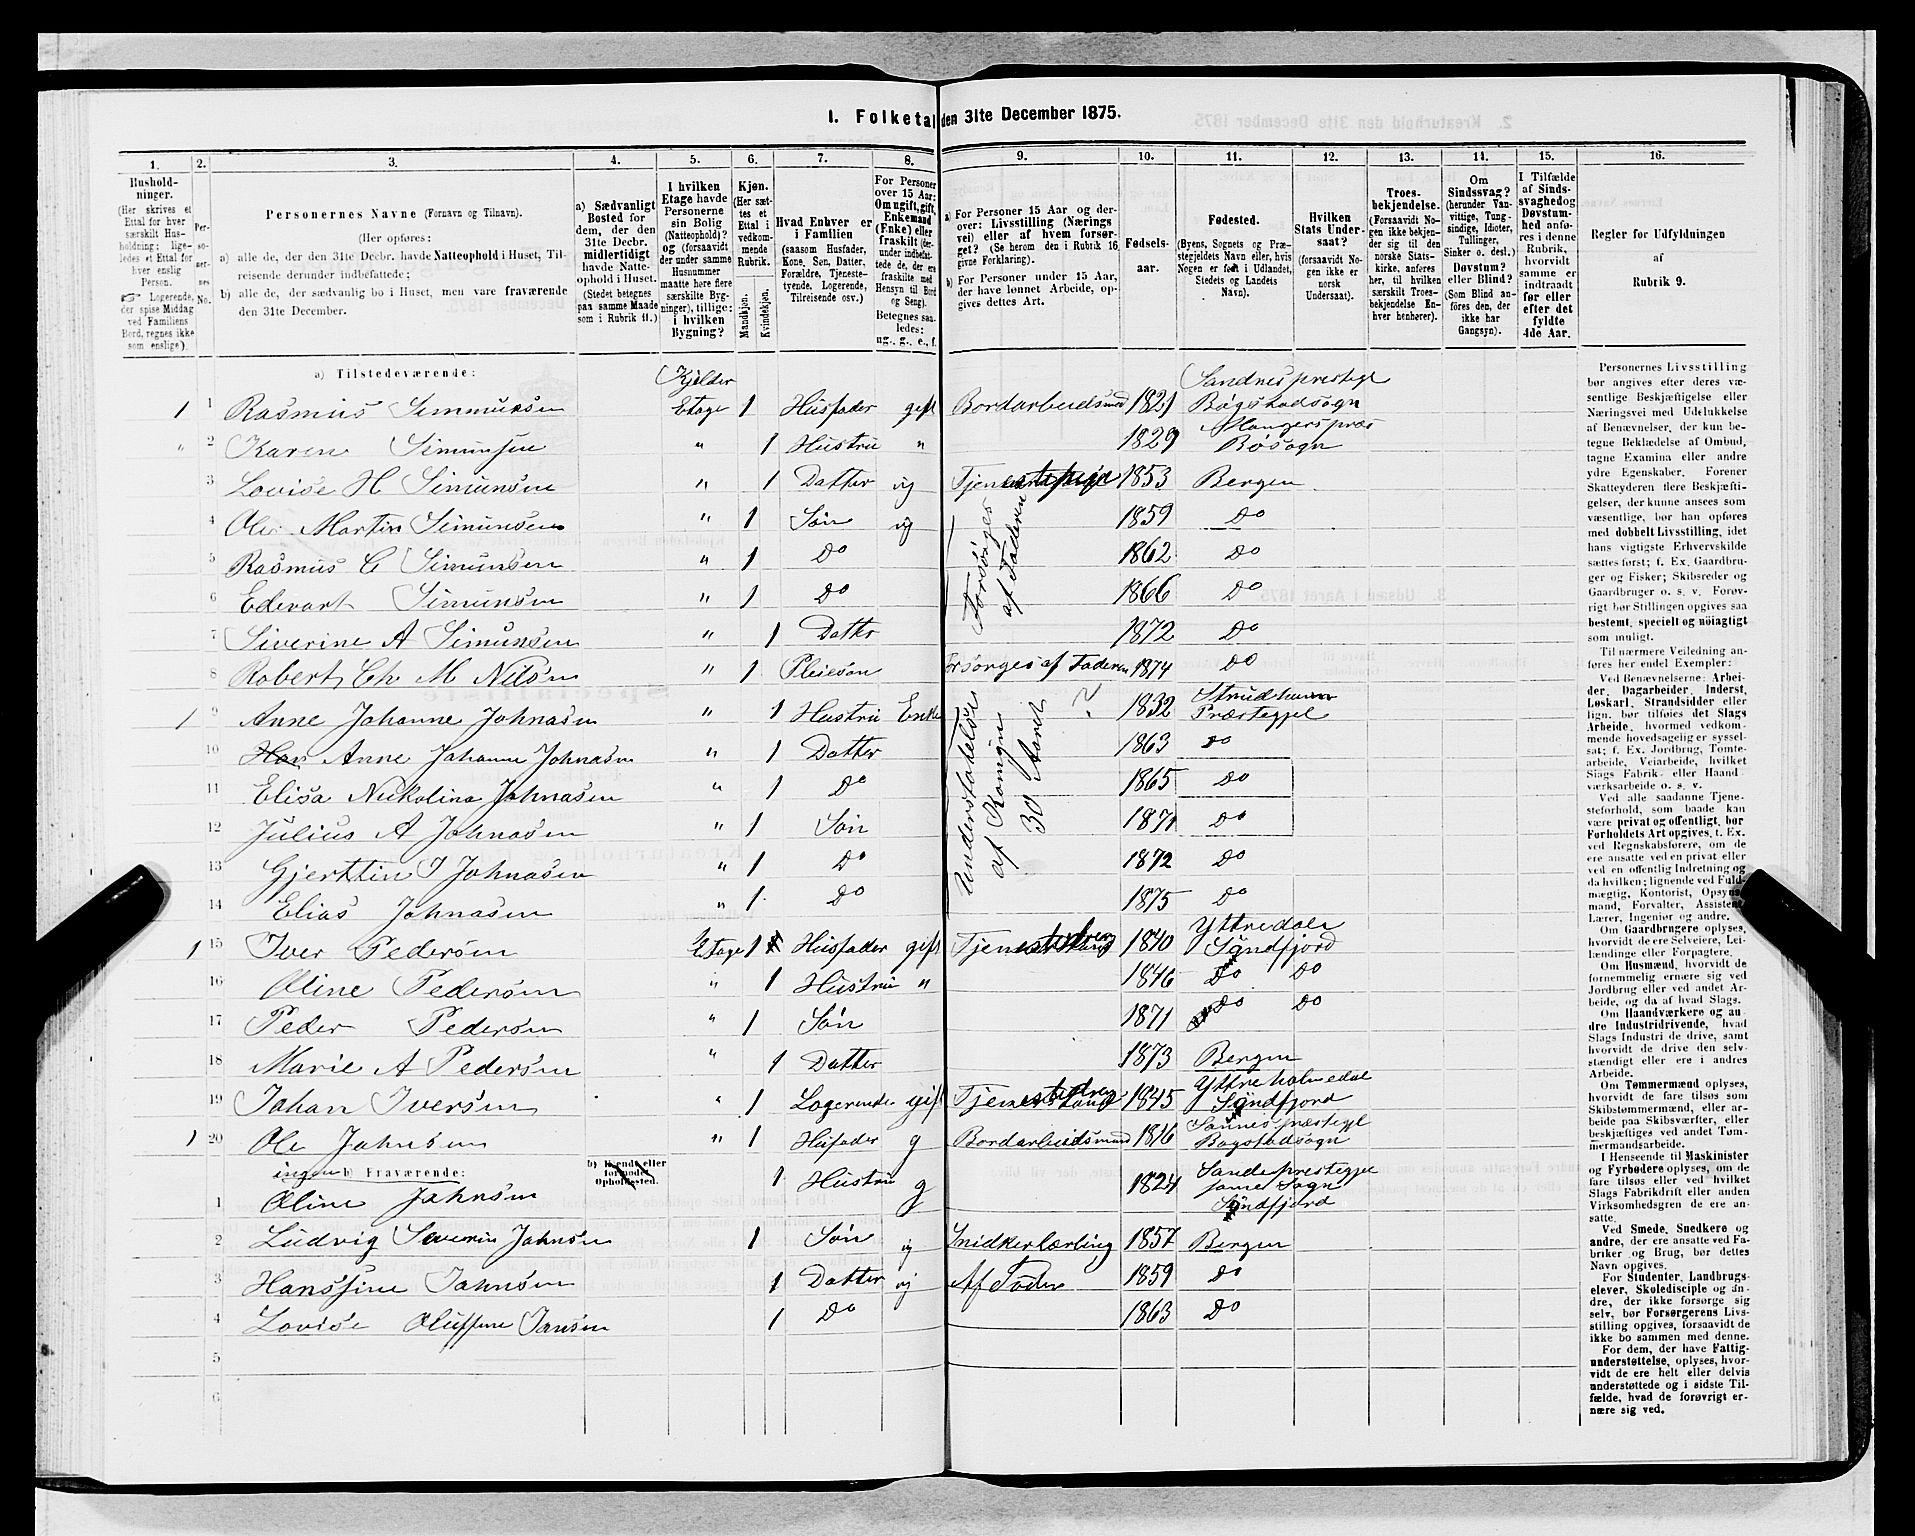 1. Folketal den 31te December 1875.
1. 2. 3. 4. 5. 6. 7. 8. 9. 10. 11. 12. 13. 14. 15. 16.
Husholdninger.
(Her skrives et
Ettal for hver
særskilt Husholdning;
ligeledes
et Ettal for
hver enslig
Person.
Logerende,
der spise Middag
ved Familiens
Bord, regnes ikke
som enslige).
Personernes No.
Personernes Navne (Fornavn og Tilnavn).
(Her opføres:
a) alle de, der den 31te Decbr. havde Natteophold i Huset, Tilreisende
derunder indbefattede;
b) alle de, der sædvanlig bo i Huset, men vare fraværende
den 31te December.
a) Sædvanligt
Bosted for
dem, der den
31te Decbr.
midlertidigt
havde Natteophold
i Huset.
(Stedet betegnes
paa samme Maade
som i Rubrik 11.)
I hvilken
Etage havde
Personerne
sin Bolig
(Natteophold)?
og (forsaavidt
der under samme
Husnummer
maatte høre flere
særskilte Bygninger),
tillige:
i hvilken
Bygning?
Kjøn.
(Her sættes
et
Ettal i
vedkommende
Rubrik.
Mandkjøn.
Kvindekjøn.
Hvad Enhver er
i Familien
(saasom Husfader,
Kone, Søn, Datter,
Forældre, Tjenestetyende,
Logerende,
Tilreisende osv.)
For Personer
over 15 Aar:
Om ugift, gift,
Enkemand
(Enke) eller
fraskilt (derunder
indbefattede
de, der ere
fraskilte med
Hensyn til Bord
og Seng).
Betegnes saaledes:
ug., g., e., f.
a) For Personer 15 Aar og derover:
Livsstilling (Næringsvei)
eller af hvem forsørget?
(Se herom den i Rubrik 16
givne Forklaring).
b) For Personer under 15 Aar,
der have lønnet Arbeide, opgives
dettes Art.
Fødselsaar.
Fødested.
(Byens, Sognets og Præstegjeldets
Navn eller, hvis
Nogen er født i Udlandet,
Stedets og Landets
Navn).
Hvilken
Stats Undersaat?
(forsaavidt Nogen
ikke er
norsk
Undersaat).
Troesbekjendelse.
(Forsaavidt Nogen
ikke bekjender
sig til den
norske Statskirke,
anføres
her, til hvilken
særskilt Troesbekjendelse
Enhver
henhører).
Om
Sindssvag?
(herunder Vanvittige,
Tungsindige,
Idioter,
Tullinger,
Sinker o. desl.)
Døvstum?
eller Blind?
(Som Blind anføres
den, der
ikke har
Gangsyn).
I Tilfælde
af Sindssvaghed
og
Døvstumhed
anføres
i denne
Rubrik,
hvorvidt
samme er
indtraadt
før eller
efter det
fyldte
4de Aar.
Regler for Udfyldningen
af
Rubrik 9.
a) Tilstedeværende:
1 1 Rasmus Simmunsen Kjelder Etage 1 Husfader gift Bordarbeidsmd 1821 Sandnes prestegl Bøgstadsogn
" 2 Karen Simunsen " 1 Hustru " 1829 Bøsogn
3 Lovise H Simunsen " 1 Datter ug 1853 Bergen
4 Ole Martin Simunsen " 1 Søn ug 1859 Do
5 Rasmus C Simunsen " 1 Do 1862 Do
6 Edevart Simunsen " 1 Do 1866 Do
Forsørges
af Faderen
7 Siverine A Simunsen " 1 Datter 1872 Do
8 Robert Ch M Nilsen " 1 Pleiesøn Forsørges af Faderen 1874 Do
1 9 Anne Johanne Johnasen " 1 Hustru Enke ? 1832 Præstegjel
10 Anne Johanne Johnasen " 1 Datter 1863 Do
11 Elisa Nikolina Johnasen " 1 Do 1865 Do
12 Julius A Johnasen " 1 Søn 1871 Do
13 Gjerttin I Johnasen " 1 Do 1872 Do
14 Elias Johnasen " 1 Do 1875 Do
Understøttelse
af
30 Aaret
1 15 Iver Pedersen Etage 1 Husfader gift 1840 Yttredale Søndfjord
16 Oline Pedersen " 1 Hustru " 1846 Do Do
17 Peder Pedersen " 1 Søn 1871 Do Do
18 Marie A Pedersen " 1 Datter 1873 Bergen
19 Johan Iversen " 1 Logerende gift 1845 Yttre holmedal Søndfjord
1 20 Ole Johnsen " 1 Husfader g Bordarbeidsmand 1816 Sannes prestegl Bøgstadsogn
ingen b) Fraværende:
b) Kjendt eller
formodet
Opholdssted.
1 Oline Johnsen 1 Hustru g 1824 Sande prestegjel same Sogn Søndfjord
2 Ludvig Severin Johnsen 1 Søn ug Snidkerlærling 1857 Bergen
3 Hanssine Jahnsen 1 Datter ug Af Fader 1859 Do
4 Lovise Oluffine Jansen 1 Do 1863 Do
5
6
Personernes Livsstilling
bør angives efter deres væsentlige
Beskjæftigelse eller
Næringsvei med Udelukkelse
af Benævnelser, der kun betegne
Beklædelse af Ombud,
tagne Examina eller andre
ydre Egenskaber. Forener
Skatteyderen flere Beskjæftigelser,
der kunne ansees som
væsentlige, bør han opføres
med dobbelt Livsstilling, idet
hans vigtigste Erhvervskilde
sættes først; f. Ex. Gaardbruger
og Fisker; Skibsreder og
Gaardbruger o. s. v. Forøvrigt
bør Stillingen opgives saa
bestemt, specielt og nöiagtigt
som muligt.
Til nærmere Veiledning anføres
her endel Exempler:
Ved Benævnelserne: Arbeider,
Dagarbeider, Inderst,
Løskarl, Strandsidder eller
lign. bør tilføies det Slags
Arbeide, hvormed vedkommende
hovedsagelig er sysselsat;
f. Ex. Jordbrug, Tomtearbeide,
Veiarbeide, hvilket
Slags Fabrik- eller Haandværksarbeide
o. s. v.
Ved alle saadanne Tjenesteforhold,
som baade kan
være privat og offentligt, bør
Forholdets Art opgives, t. Ex.
ved Regnskabsførere, om de
ere ansatte ved en privat eller
ved en offentlig Indretning og
da hvilken; lignende ved Fuldmægtig,
Kontorist, Opsynsmand,
Forvalter, Assistent,
Lærer, Ingeniør og andre.
Om Gaardbrugere oplyses,
hvorvidt de ere Selveiere, Leilændinge
eller Forpagtere.
Om Husmænd, hvorvidt de
fornemmelig ernære sig ved
Jordbrug eller ved andet Arbeide,
og da af hvad Slags.
Om Haandværkere og andre
Industridrivende, hvad
Slags Industri de drive, samt
hvorvidt de drive den selvstændigt
eller ere i andres
Arbeide.
Om Tømmermænd oplyses,
hvorvidt de fare tilsøs som
Skibstømmermænd, eller arbeide
paa Skibsværfter, eller
beskjæftiges ved andet Tømmermandsarbeide.
I Henseende til Maskinister
og Fyrbødere oplyses, om de
fare tilsøs eller ved hvilket
Slags Fabrikdrift eller anden
Virksomhedsgren de ere ansatte.
Ved Smede, Snedkere og
andre, der ere ansatte ved Fabriker
og Brug, bør dettes
Navn opgives.
For Studenter, Landbrugselever,
Skoledisciple og andre,
der ikke forsørge sig
selv, bør Forsørgerens Livsstilling
opgives, forsaavidt de
ikke bo sammen med denne.
For dem, der have Fattigunderstøttelse,
oplyses, hvorvidt
de ere helt eller delvis
understøttede og i sidste Tilfælde,
hvad de forøvrigt ernære
sig ved.